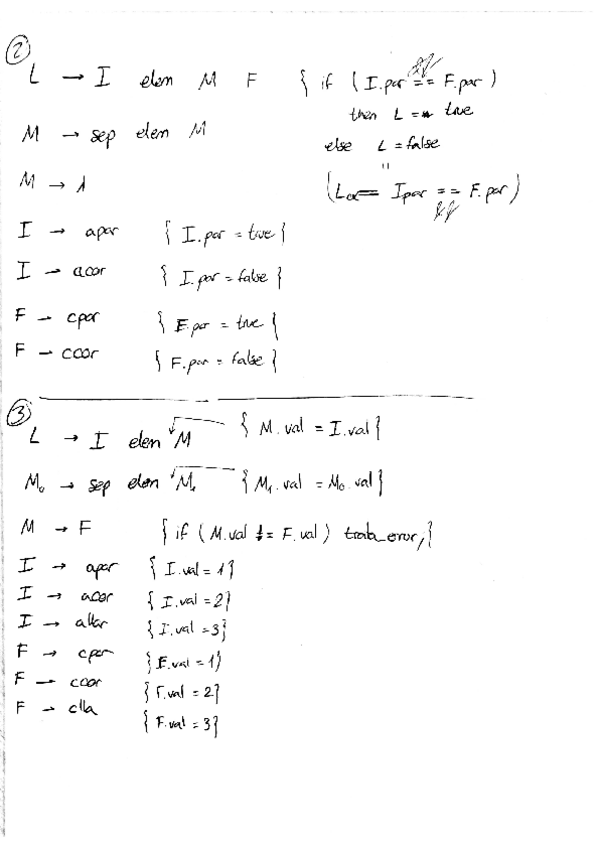 ②
L → I elem M F { if (I.par == F.par)
then L = true
else L = false
M → sep elem M
M → λ
(L.ok = I.par == F.par)
I → apar { I.par = true }
I → acor { I.par = false }
F → cpar { F.par = true }
F → ccor { F.par = false }
③
L → I elem M { M.val = I.val }
M₀ → sep elem M₁ { M₁.val = M₀.val }
M → F { if (M.val != F.val) trata_error; }
I → apar { I.val = 1 }
I → acor { I.val = 2 }
I → allav { I.val = 3 }
F → cpar { F.val = 1 }
F → ccor { F.val = 2 }
F → clla { F.val = 3 }